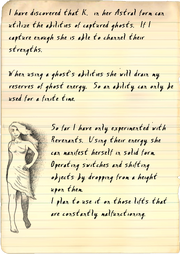 I have discovered that K. in her Astral form can
utilize the abilities of captured ghosts. If I
capture enough she is able to channel their
strengths.
When using a ghost's abilities she will drain my
reserves of ghost energy. So an ability can only be
used for a finite time.
So far I have only experimented with
Revenants. Using their energy she
can manifest herself in solid form.
Operating switches and shifting
objects by dropping from a height
upon them.
I plan to use it on those lifts that
are constantly malfunctioning.